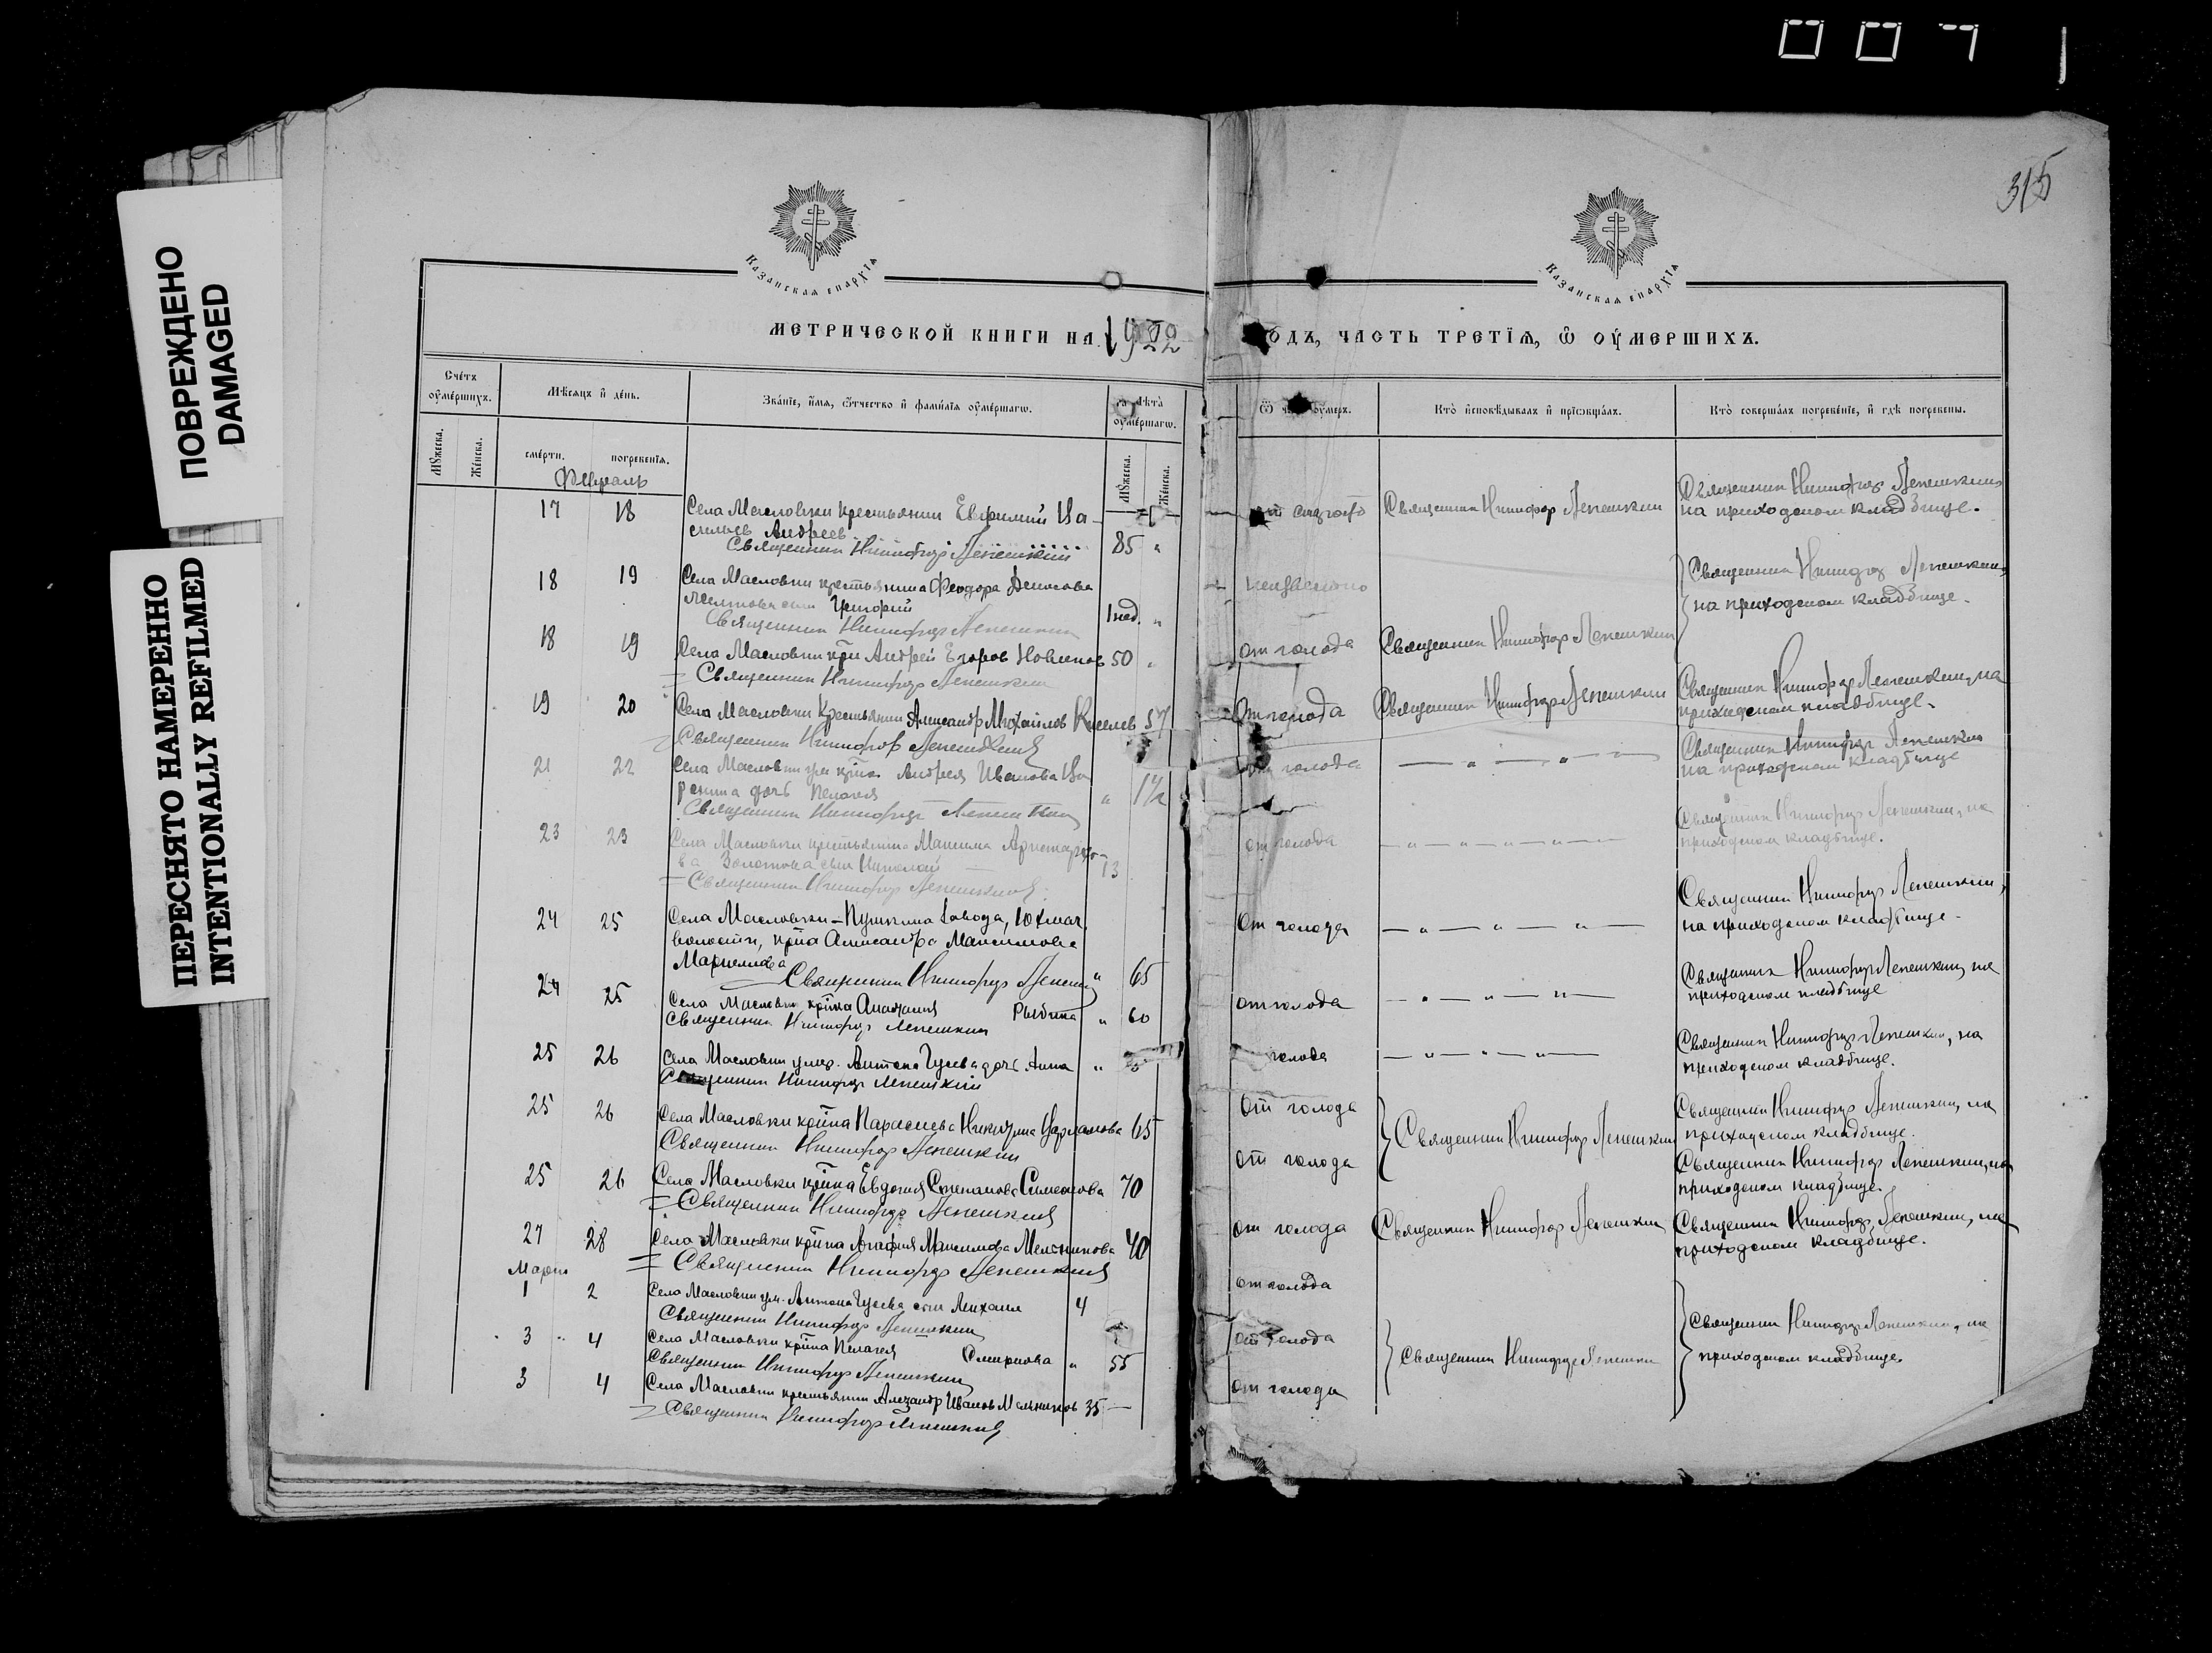 007
315
ПОВРЕЖДЕНО
DAMAGED
ПЕРЕСНЯТО НАМЕРЕННО
INTENTIONALLY REFILMED
Казанская епархїѧ
Казанская епархїѧ
МЕТРИЧЕСКОЙ КНИГИ НА 1922
ОДЪ, ЧАСТЬ ТРЕТІѦ, Ѿ ОУМЕРШИХЪ.
Счетъ оумершихъ.
Мѣсяцъ и день.
Званіе, имя, отчество и фамилія оумершагѡ.
Лѣта оумершагѡ.
Мужеска.
Женска.
смерти.
погребенія.
Мужеска.
Женска.
Ѿ оумеръ.
Кто исповѣдывалъ и пріобщалъ.
Кто совершалъ погребеніе, и гдѣ погребены.
Февраль
17 18 Села Масловки крестьянин Евфимий Ва-
сильев Андреев 85 "
Священник Никифор Лепешкин
от старости Священник Никифор Лепешкин
Священник Никифор Лепешкин
на приходском кладбище.
18 19 Села Масловки крестьянина Феодора Денисова
сын Григорий 1 нед. "
Священник Никифор Лепешкин
неизвестно
Священник Никифор Лепешкин,
на приходском кладбище.
18 19 Села Масловки кр Андрей Егоров 50 "
Священник Никифор Лепешкин
от голода Священник Никифор Лепешкин
19 20 Села Масловки Крестьянин Александр Михайлов Киселев 57
Священник Никифор Лепешкин
От голода Священник Никифор Лепешкин
Священник Никифор Лепешкин, на
приходском кладбище.
21 22 Села Масловки Андрея Иванова
дочь Пелагея " 1½
Священник Никифор Лепешкин
от голода — " — " — " —
Священник Никифор Лепешкин
на приходском кладбище
23 23 Села Масловки крестьянина Максима
Золотова сын Николай 13
Священник Никифор Лепешкин
от голода — " — " — " — " —
Священник Никифор Лепешкин, на
приходском кладбище.
24 25 Села Масловки - Пушкина завода, Юхмач.
волости, кр-на Александра Максимова
" 65
Священник Никифор Лепешкин
От голода — " — " — " —
Священник Никифор Лепешкин,
на приходском кладбище.
24 25 Села Масловки кр-на Рыбина " 60
Священник Никифор Лепешкин
от голода — " — " — " —
Священник Никифор Лепешкин, на
приходском кладбище
25 26 Села Масловки умер. Антона Гусева дочь Анна "
Священник Никифор Лепешкин
голода — " — " — " —
Священник Никифор Лепешкин, на
приходском кладбище.
25 26 Села Масловки кр-на Параскева Никитина 65
Священник Никифор Лепешкин
От голода
Священник Никифор Лепешкин
Священник Никифор Лепешкин, на
приходском кладбище.
25 26 Села Масловки кр-на Евдокия Степанова Симонова 70
Священник Никифор Лепешкин
от голода
Священник Никифор Лепешкин, на
приходском кладбище.
27 28 Села Масловки кр-на Агафия Максимова Мельникова 40
Священник Никифор Лепешкин
от голода Священник Никифор Лепешкин
Священник Никифор Лепешкин, на
приходском кладбище.
Март
1 2 Села Масловки ум. Антона Гусева сын Михаил 4
Священник Никифор Лепешкин
от голода
3 4 Села Масловки кр-на Пелагея Смирнова " 55
Священник Никифор Лепешкин
от голода
Священник Никифор Лепешкин
Священник Никифор Лепешкин, на
приходском кладбище
3 4 Села Масловки крестьянин Александр Иванов Мельников 35 —
Священник Никифор Лепешкин
от голода